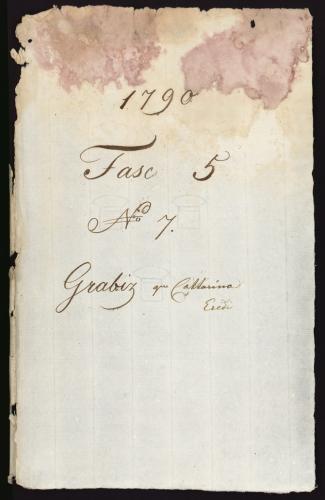 1790
Fasc 5
No 7.
Grabiz qm Cattarina
Eredi